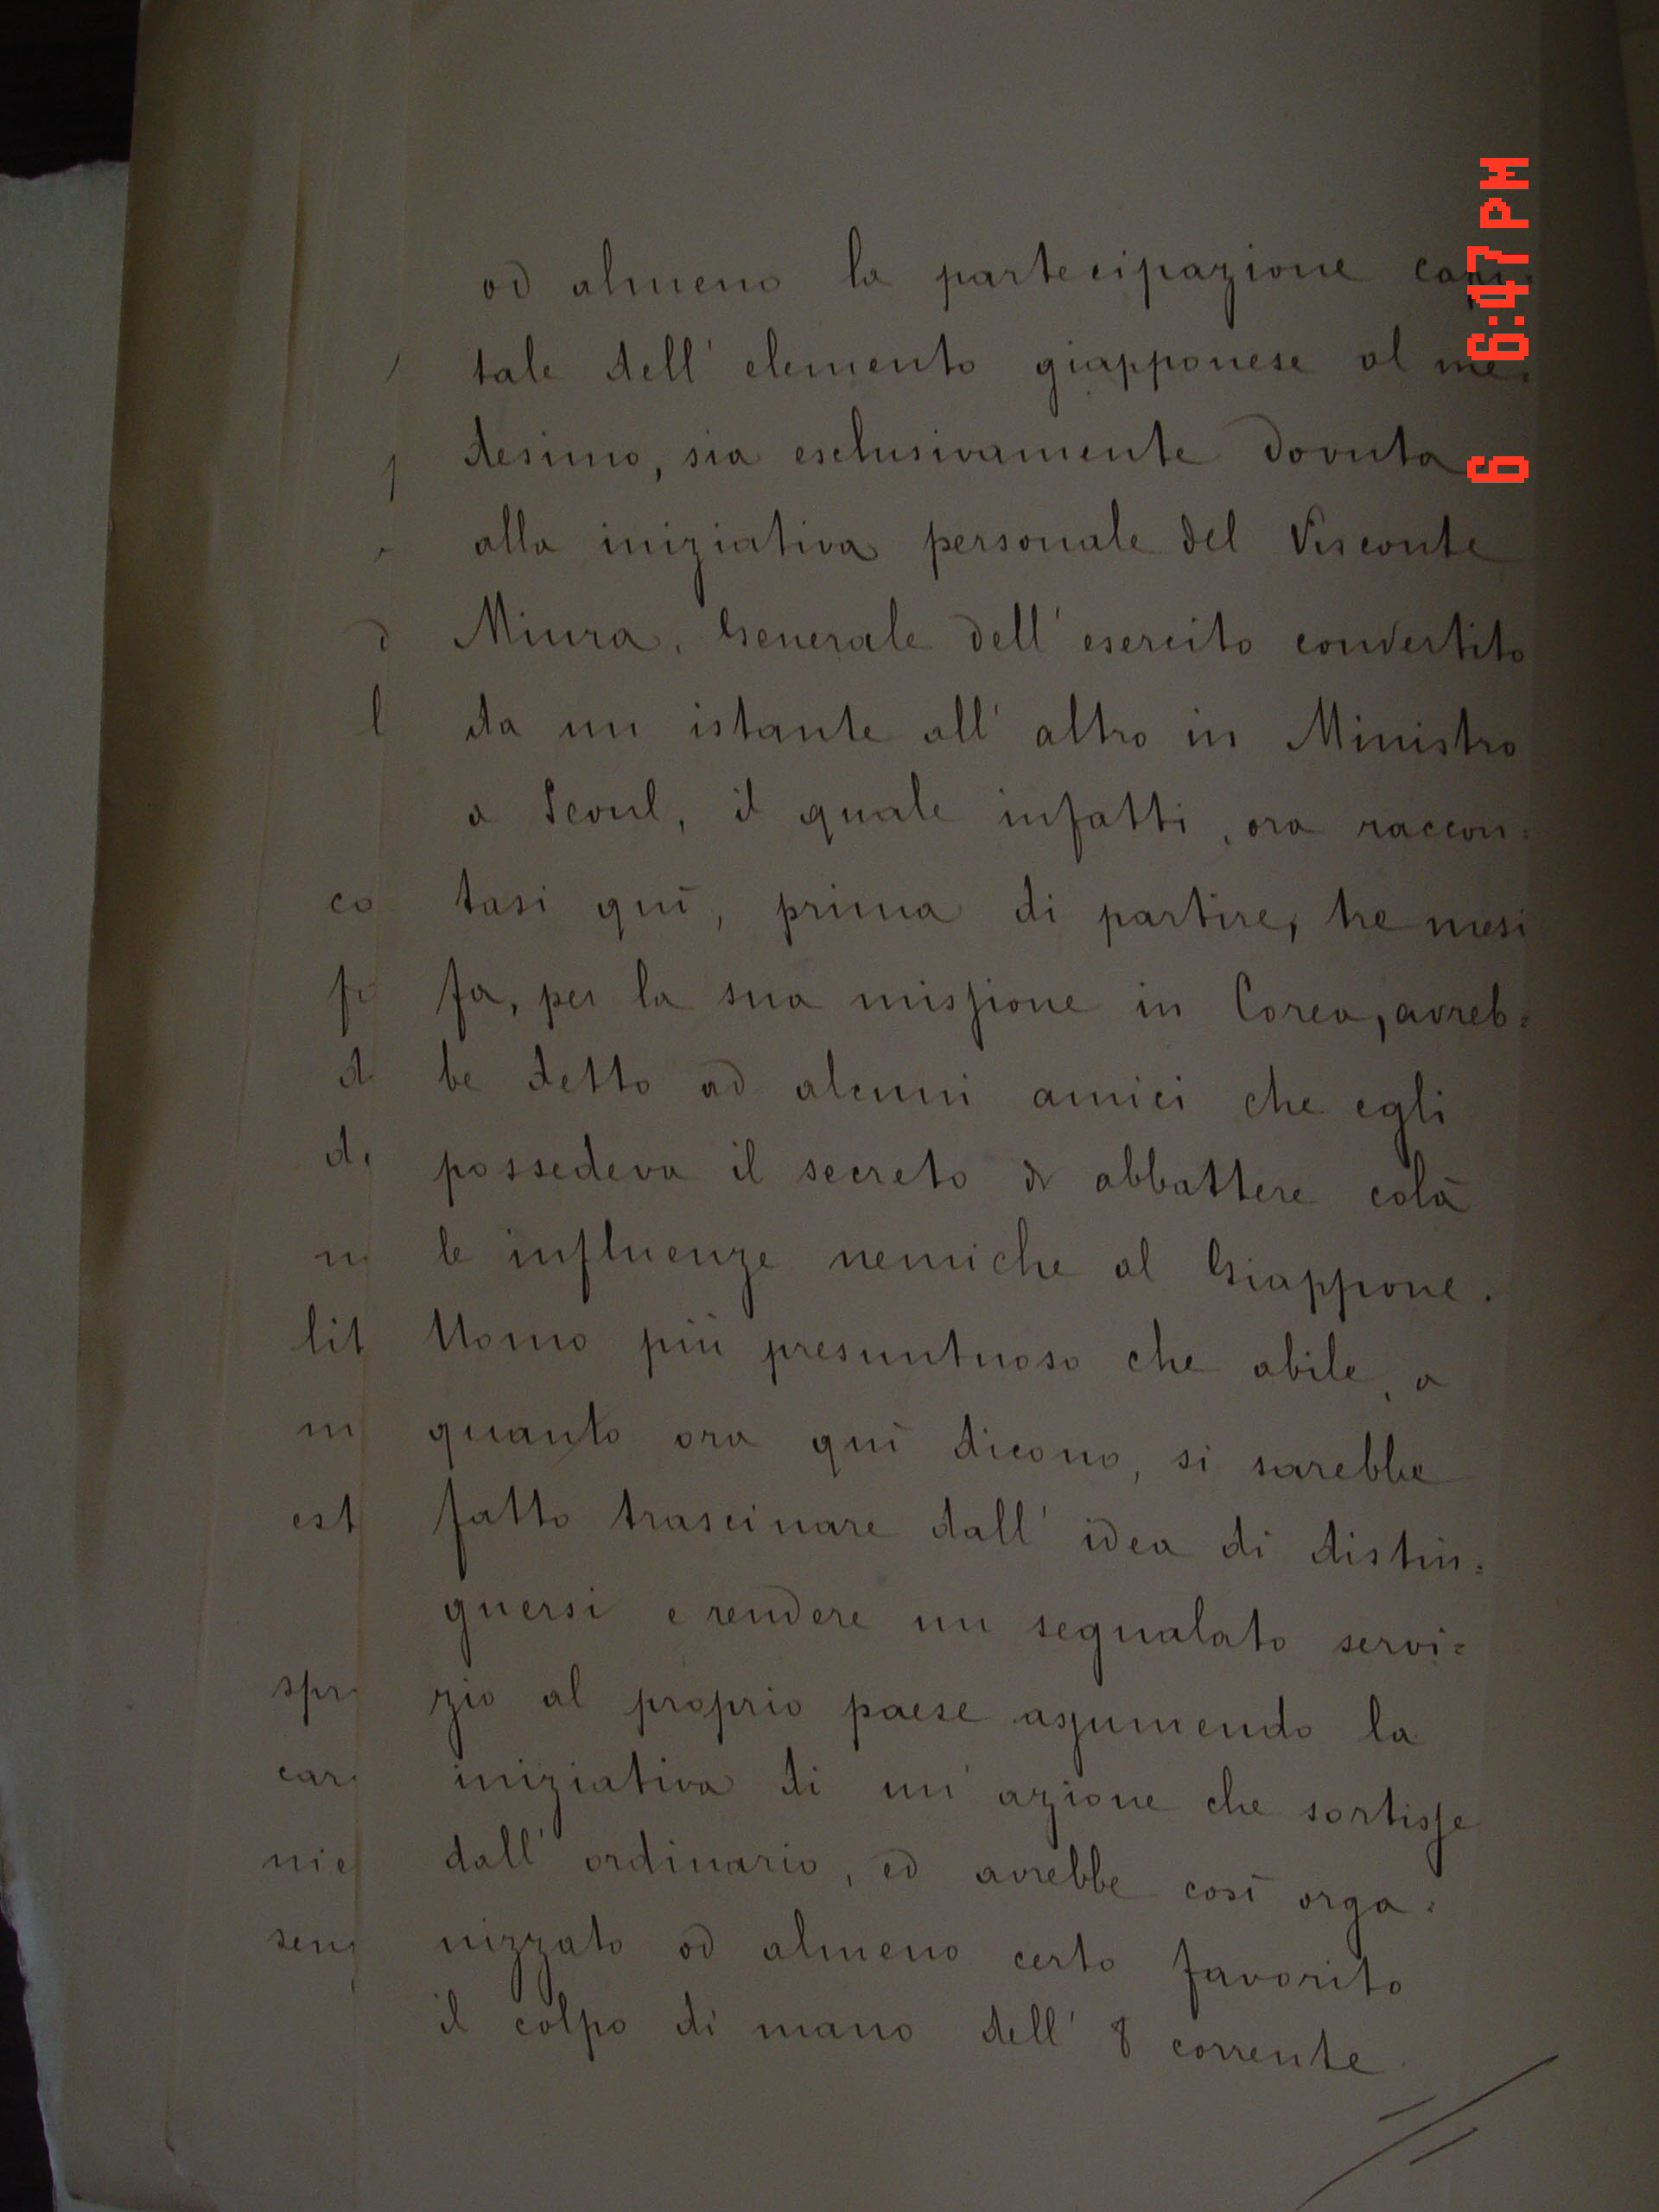 od almeno la partecipazione capi=
tale dell' elemento giapponese al me=
desimo, sia esclusivamente dovuta
alla iniziativa personale del Visconte
Miura, Generale dell' esercito convertito
da un istante all' altro in Ministro
a Seoul, il quale infatti, ora raccon=
tasi quì, prima di partire, tre mesi
fa, per la sua missione in Corea, avreb=
be detto ad alcuni amici che egli
possedeva il secreto di abbattere colà
le influenze nemiche al Giappone.
Uomo più presuntuoso che abile, a
quanto ora quì dicono, si sarebbe
fatto trascinare dall' idea di distin=
guersi e rendere un segnalato servi=
zio al proprio paese assumendo la
iniziativa di un' azione che sortisse
dall' ordinario, ed avrebbe così orga=
nizzato od almeno certo favorito
il colpo di mano dell' 8 corrente
co
d
lit
m
est
spr
car
nie
6 6:47 PM